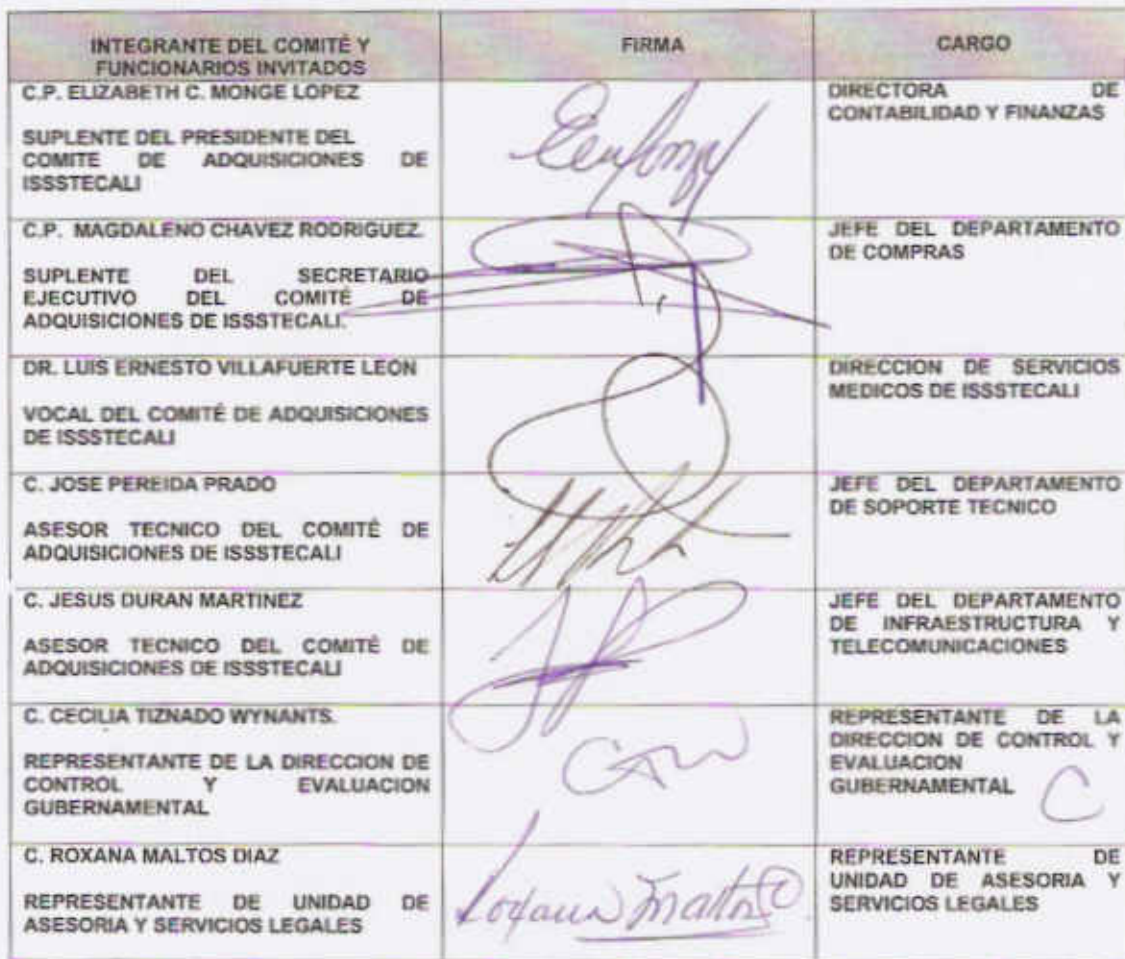 INTEGRANTE DEL COMITÉ Y
FUNCIONARIOS INVITADOS
FIRMA
CARGO
C.P. ELIZABETH C. MONGE LOPEZ
SUPLENTE DEL PRESIDENTE DEL
COMITE DE ADQUISICIONES DE
ISSSTECALI
DIRECTORA DE
CONTABILIDAD Y FINANZAS
C.P. MAGDALENO CHAVEZ RODRIGUEZ.
SUPLENTE DEL SECRETARIO
EJECUTIVO DEL COMITÉ DE
ADQUISICIONES DE ISSSTECALI.
JEFE DEL DEPARTAMENTO
DE COMPRAS
DR. LUIS ERNESTO VILLAFUERTE LEON
VOCAL DEL COMITÉ DE ADQUISICIONES
DE ISSSTECALI
DIRECCION DE SERVICIOS
MEDICOS DE ISSSTECALI
C. JOSE PEREIDA PRADO
ASESOR TECNICO DEL COMITÉ DE
ADQUISICIONES DE ISSSTECALI
JEFE DEL DEPARTAMENTO
DE SOPORTE TECNICO
C. JESUS DURAN MARTINEZ
ASESOR TECNICO DEL COMITÉ DE
ADQUISICIONES DE ISSSTECALI
JEFE DEL DEPARTAMENTO
DE INFRAESTRUCTURA Y
TELECOMUNICACIONES
C. CECILIA TIZNADO WYNANTS.
REPRESENTANTE DE LA DIRECCION DE
CONTROL Y EVALUACION
GUBERNAMENTAL
REPRESENTANTE DE LA
DIRECCION DE CONTROL Y
EVALUACION
GUBERNAMENTAL
C
C. ROXANA MALTOS DIAZ
REPRESENTANTE DE UNIDAD DE
ASESORIA Y SERVICIOS LEGALES
REPRESENTANTE DE
UNIDAD DE ASESORIA Y
SERVICIOS LEGALES